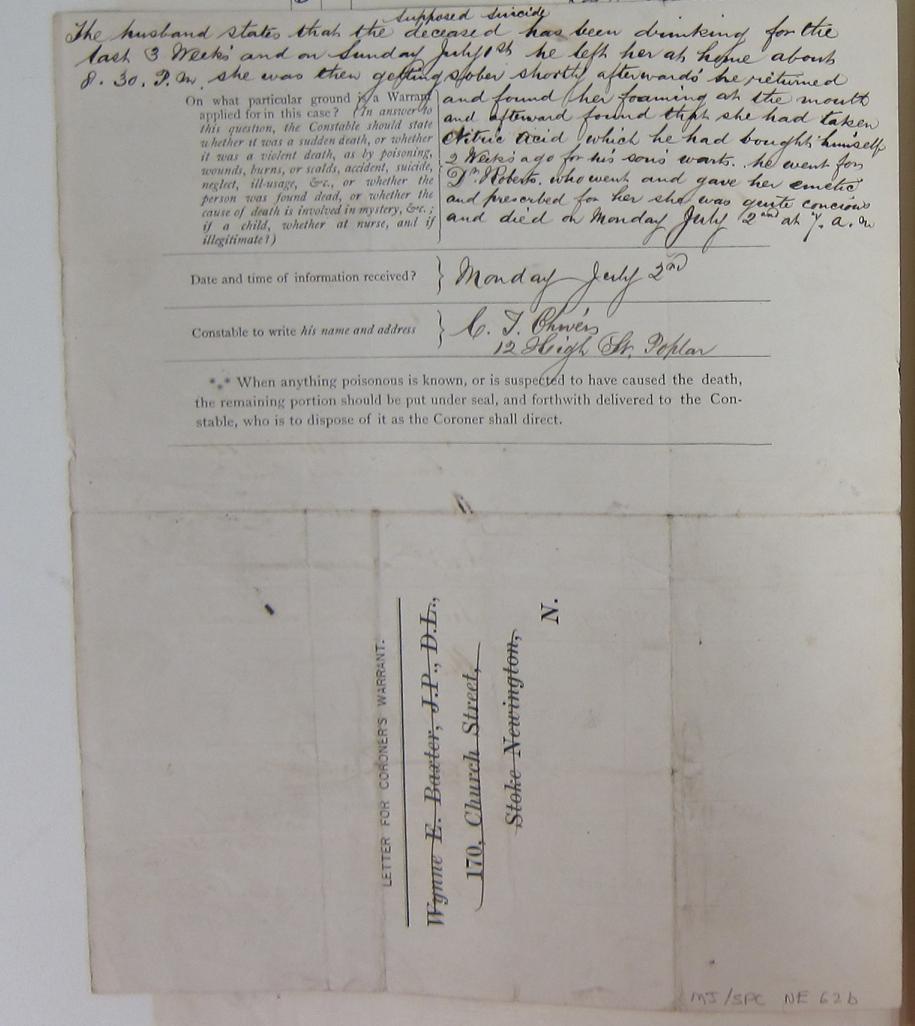 supposed suicide
The husband states that the deceased has been drinking for the
last 3 Weeks and on Sunday July 1st he left her at home about
8. 30. P.M. she was then getting sober shortly afterwards he returned
and found her foaming at the mouth
and afterward found that she had taken
Nitric Acid which he had bought himself
2 Weeks ago for his sons warts. he went for
Dr. Roberts. who went and gave her emetic
and prescribed for her she was quite concious
and died on Monday July 2nd at 7. a.m
On what particular ground is a Warrant
applied for in this case? (In answer to
this question, the Constable should state
whether it was a sudden death, or whether
it was a violent death, as by poisoning,
wounds, burns, or scalds, accident, suicide,
neglect, ill-usage, &c., or whether the
person was found dead, or whether the
cause of death is involved in mystery, &c.;
if a child, whether at nurse, and if
illegitimate?)
Date and time of information received? } Monday July 2nd
Constable to write his name and address } C. T.
12 High St. Poplar
*** When anything poisonous is known, or is suspected to have caused the death,
the remaining portion should be put under seal, and forthwith delivered to the Con-
stable, who is to dispose of it as the Coroner shall direct.
LETTER FOR CORONER'S WARRANT.
Wynne E. Baxter, J.P., D.L.,
170, Church Street,
Stoke Newington,
N.
MJ/SPC NE 62b